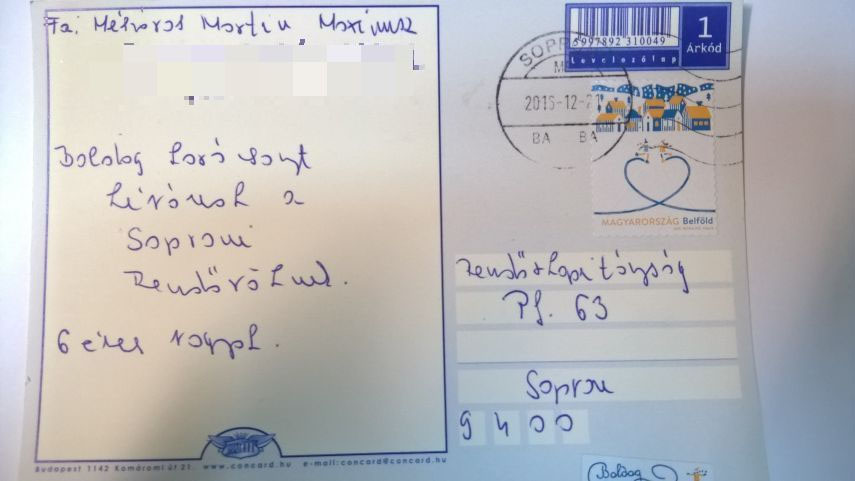 Fa: Mészáros Martin Maximusz
Boldog karácsonyt
kívánok a
Soproni
Rendőröknek.
6 éves vagyok.
5997892 310049
Levelezőlap
1
Árkód
SOPRO
2015-12-21
BA BA
MAGYARORSZÁG Belföld
Rendőrkapitányság
Pf. 63
Sopron
9400
Budapest 1142 Komáromi út 21. www.concard.hu e-mail:concard@concard.hu
Boldog